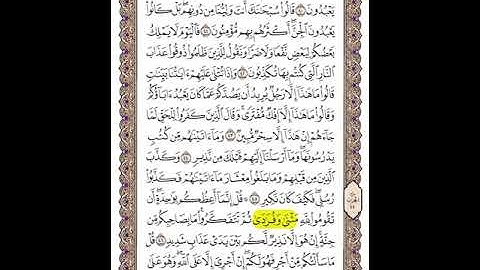 يَعْبُدُونَ ٤٠ قَالُوا۟ سُبْحَٰنَكَ أَنتَ وَلِيُّنَا مِن دُونِهِم بَلْ كَانُوا۟
يَعْبُدُونَ ٱلْجِنَّ أَكْثَرُهُم بِهِم مُّؤْمِنُونَ ٤١ فَٱلْيَوْمَ لَا يَمْلِكُ
بَعْضُكُمْ لِبَعْضٍ نَّفْعًا وَلَا ضَرًّا وَنَقُولُ لِلَّذِينَ ظَلَمُوا۟ ذُوقُوا۟ عَذَابَ
ٱلنَّارِ ٱلَّتِى كُنتُم بِهَا تُكَذِّبُونَ ٤٢ وَإِذَا تُتْلَىٰ عَلَيْهِمْ ءَايَٰتُنَا بَيِّنَٰتٍ
قَالُوا۟ مَا هَٰذَآ إِلَّا رَجُلٌ يُرِيدُ أَن يَصُدَّكُمْ عَمَّا كَانَ يَعْبُدُ ءَابَآؤُكُمْ
وَقَالُوا۟ مَا هَٰذَآ إِلَّآ إِفْكٌ مُّفْتَرًى وَقَالَ ٱلَّذِينَ كَفَرُوا۟ لِلْحَقِّ لَمَّا
جَآءَهُمْ إِنْ هَٰذَآ إِلَّا سِحْرٌ مُّبِينٌ ٤٣ وَمَآ ءَاتَيْنَٰهُم مِّن كُتُبٍ
يَدْرُسُونَهَا وَمَآ أَرْسَلْنَآ إِلَيْهِمْ قَبْلَكَ مِن نَّذِيرٍ ٤٤ وَكَذَّبَ
ٱلَّذِينَ مِن قَبْلِهِمْ وَمَا بَلَغُوا۟ مِعْشَارَ مَآ ءَاتَيْنَٰهُمْ فَكَذَّبُوا۟
رُسُلِى فَكَيْفَ كَانَ نَكِيرِ ٤٥ ۞ قُلْ إِنَّمَآ أَعِظُكُم بِوَٰحِدَةٍ أَن
تَقُومُوا۟ لِلَّهِ مَثْنَىٰ وَفُرَٰدَىٰ ثُمَّ تَتَفَكَّرُوا۟ مَا بِصَاحِبِكُم مِّن
جِنَّةٍ إِنْ هُوَ إِلَّا نَذِيرٌ لَّكُم بَيْنَ يَدَىْ عَذَابٍ شَدِيدٍ ٤٦ قُلْ
مَا سَأَلْتُكُم مِّنْ أَجْرٍ فَهُوَ لَكُمْ إِنْ أَجْرِىَ إِلَّا عَلَى ٱللَّهِ وَهُوَ عَلَىٰ